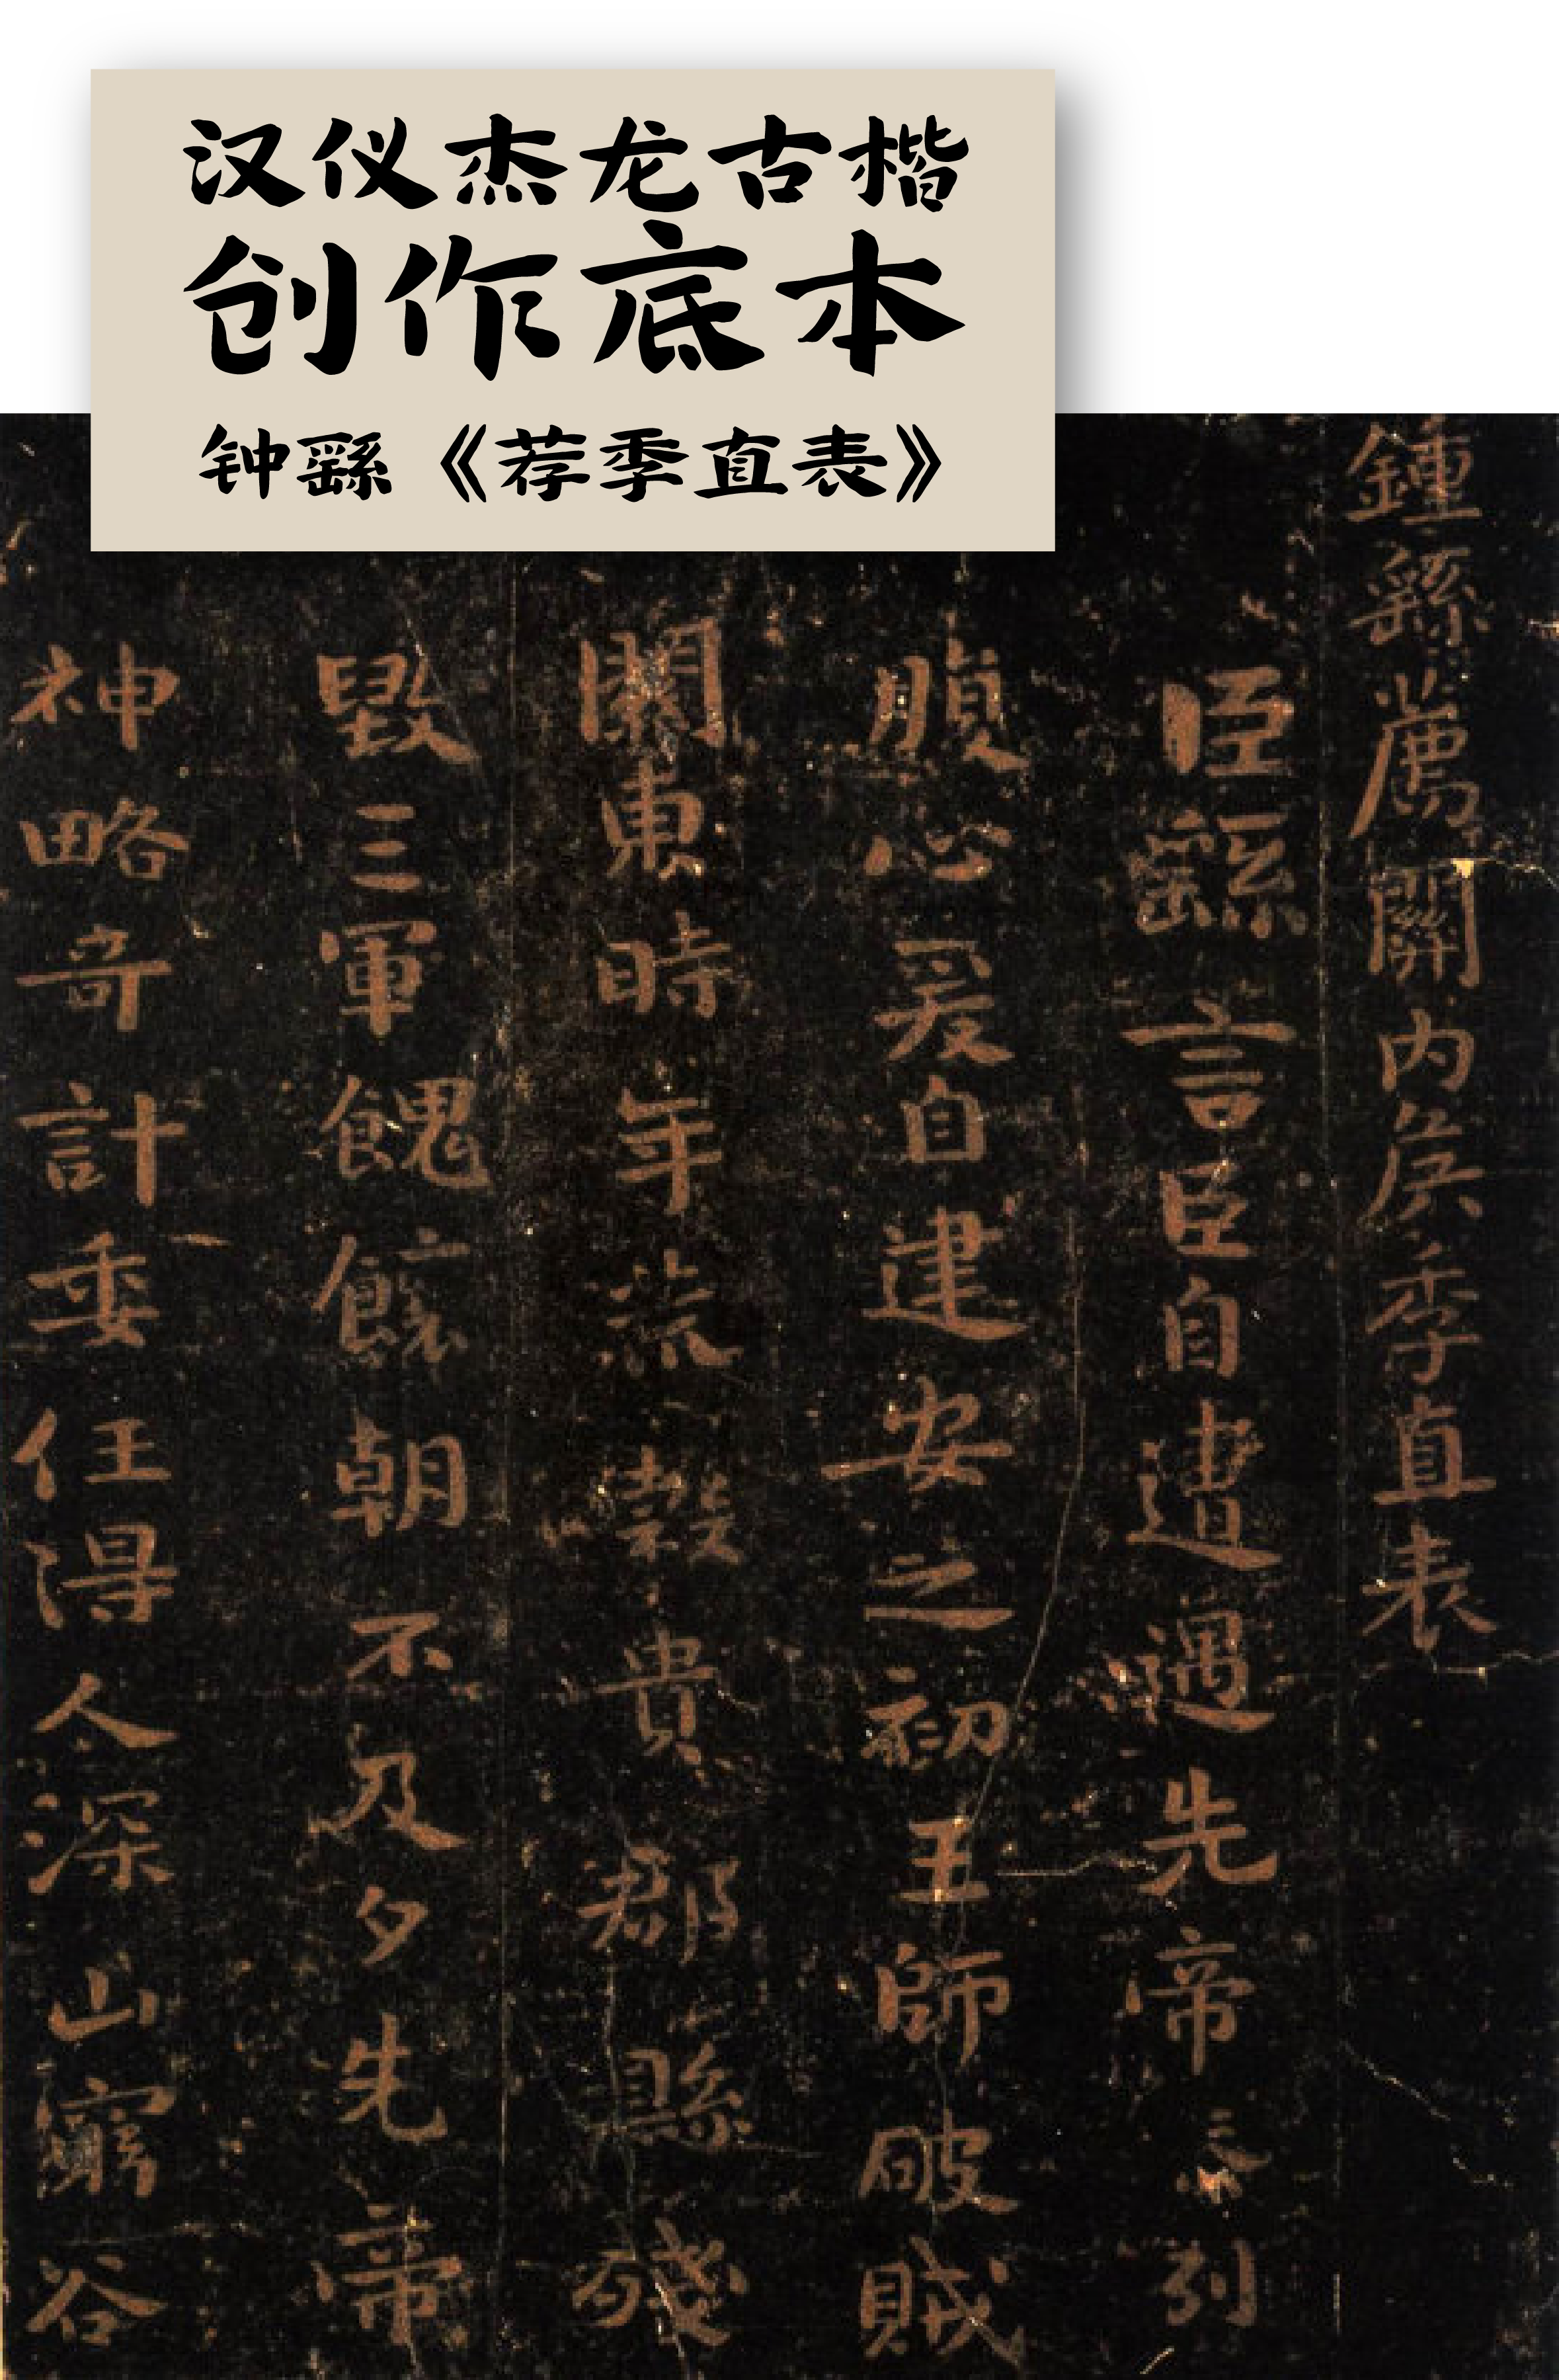 汉仪杰龙古楷
创作底本
钟繇《荐季直表》
鍾繇薦關内侯季直表
臣繇言臣自遭遇先帝忝列
腹心爰自建安之初王師破賊
關東時年荒穀貴郡縣殘
毀三軍餽饟朝不及夕先帝
神略奇計委任得人深山窮谷